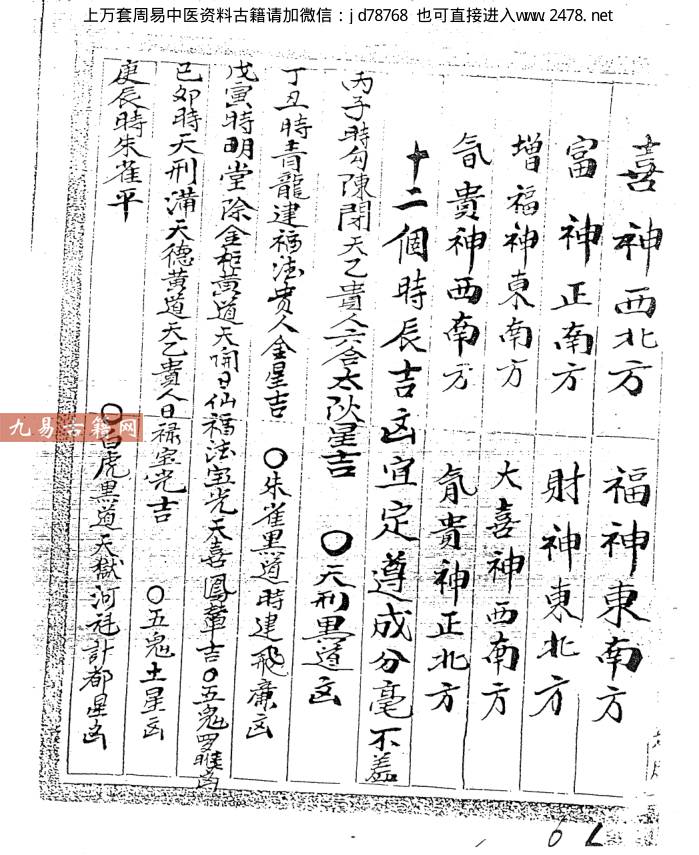 上万套周易中医资料古籍请加微信：jd78768 也可直接进入www.2478.net
喜神西北方 福神東南方
富神正南方 財神東北方
增福神東南方 大喜神西南方
貴神西南方 貴神正北方
十二個時辰吉凶宜定遵成分毫不差
丙子時勾陳閉天乙貴人六合太阴星吉 〇天刑黑道凶
丁丑時青龍建福法贵人金星吉 〇朱雀黑道時建飛廉凶
戊寅時明堂除金柜黄道天開日仙福法宝光天喜鳳輦吉〇五鬼罗睺凶
己卯時天刑满天德黄道天乙貴人日禄宝光吉 〇五鬼土星凶
庚辰時朱雀平 〇白虎黑道天獄河魁計都星凶
九易古籍网
6